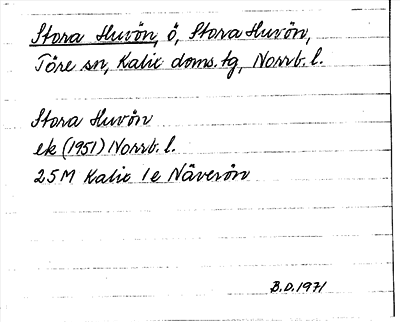 Stora Huvön, ö, Stora Huvön,
Töre sn, Kalix doms. tg, Norrb. l.
Stora Huvön
ek (1951) Norrb. l.
25M Kalix 1e Näverön
B.D. 1971